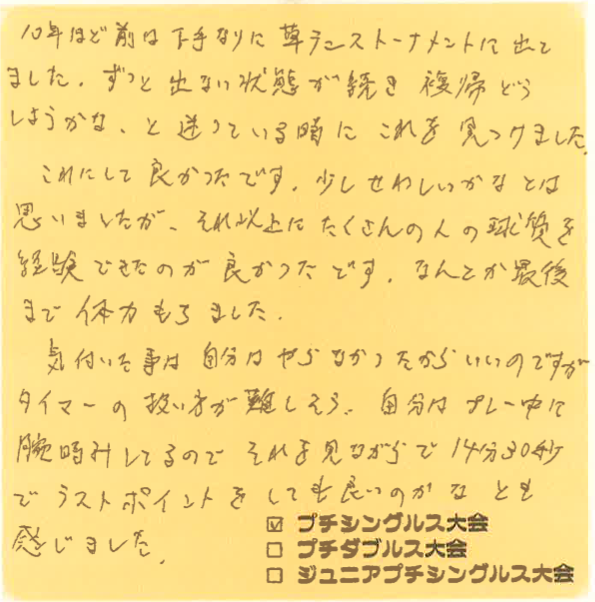 10年ほど前は下手なりに草テニストーナメントに出て
ました。ずっと出ない状態が続き復帰どう
しようかな、と迷っている時にこれを見つけました。
これにして良かったです。少しせわしいかなとは
思いましたが、それ以上にたくさんの人の球質を
経験できたのが良かったです。なんとか最後
まで体力もちました。
気付いた事は自分はやらなかったからいいのですが
タイマーの扱い方が難しそう。自分はプレー中に
腕時計してるのでそれを見ながらで14分30秒
でラストポイントをしても良いのかなとも
感じました。
☑ プチシングルス大会
☐ プチダブルス大会
☐ ジュニアプチシングルス大会